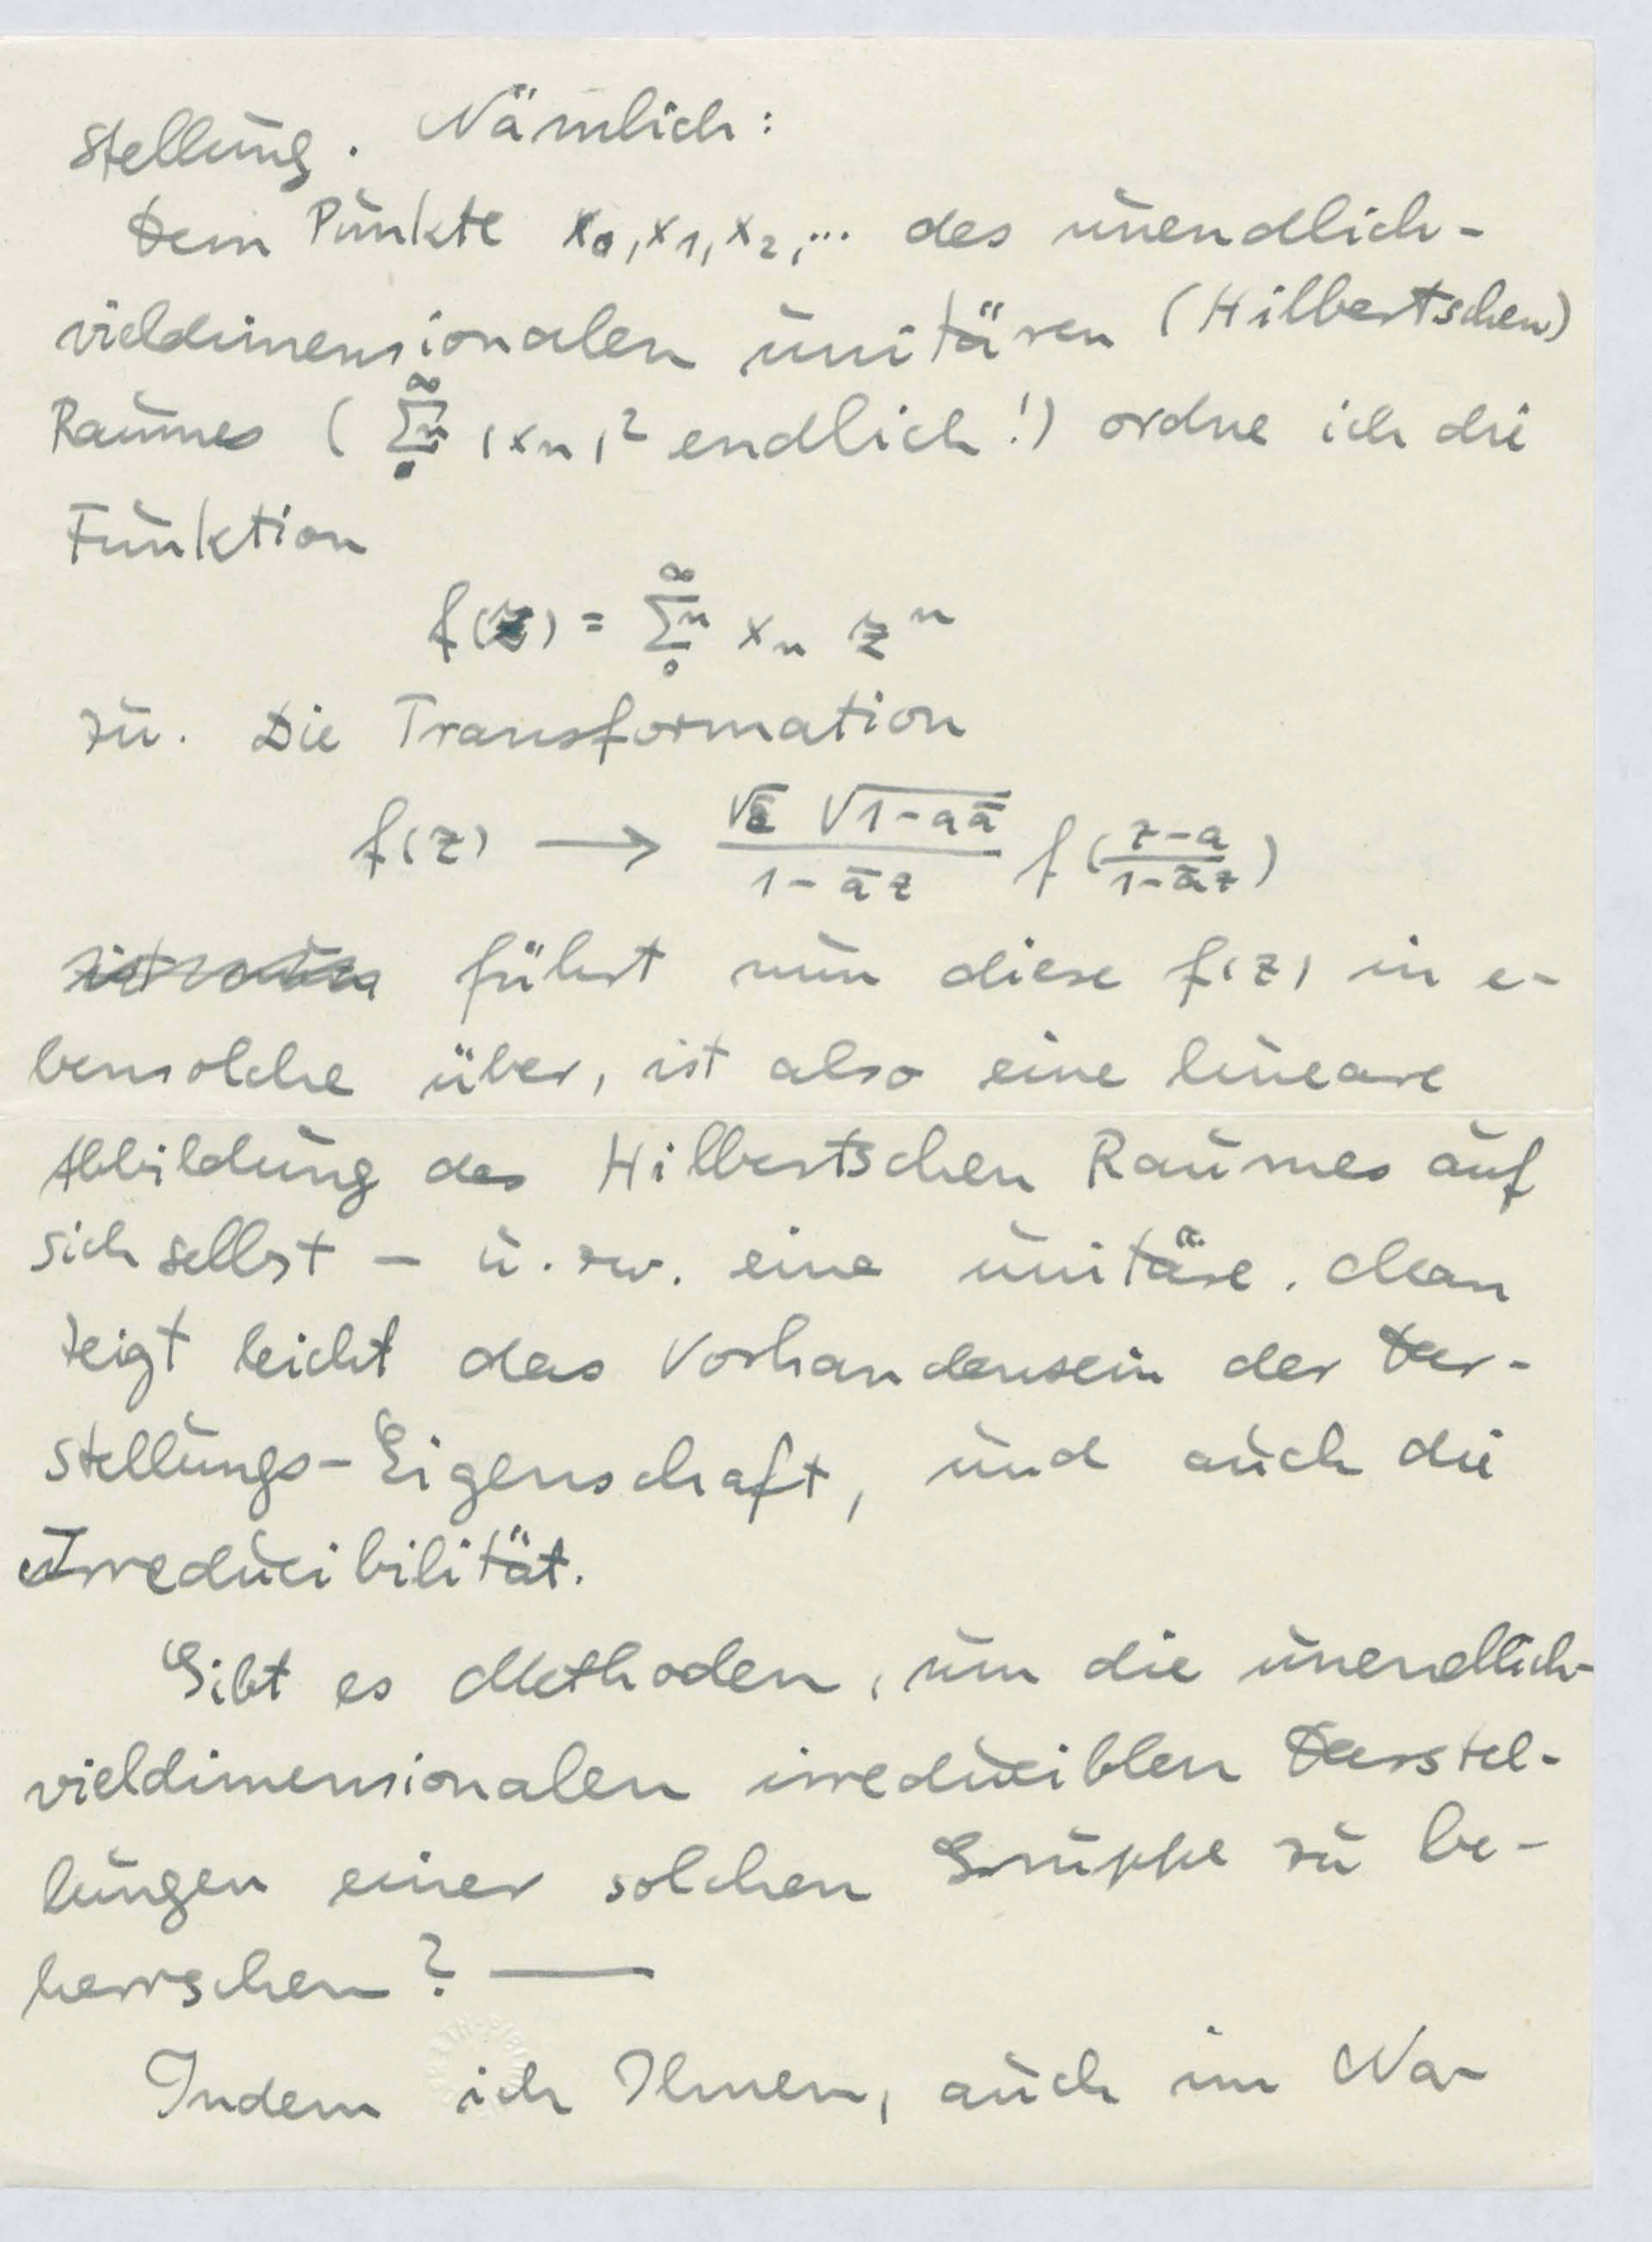 stellung. Nämlich:
Dem Punkte x₀, x₁, x₂, ... des unendlich-
vieldimensionalen unitären (Hilbertschen)
Raumes (∑ₙ₀^∞ |xₙ|² endlich!) ordne ich die
Funktion
f(z) = ∑ₙ₀^∞ xₙ zⁿ
zu. Die Transformation
f(z) → (√ε √(1-aā))/(1-āz) f((z-a)/(1-āz))
führt nun diese f(z) in e-
bensolche über, ist also eine lineare
Abbildung des Hilbertschen Raumes auf
sich selbst – u. zw. eine unitäre. Man
zeigt leicht das Vorhandensein der Dar-
stellungs-Eigenschaft, und auch die
Irreducibilität.
Gibt es Methoden, um die unendlich-
vieldimensionalen irreduciblen Darstel-
lungen einer solchen Gruppe zu be-
herrschen? —
Indem ich Ihnen, auch im Na-